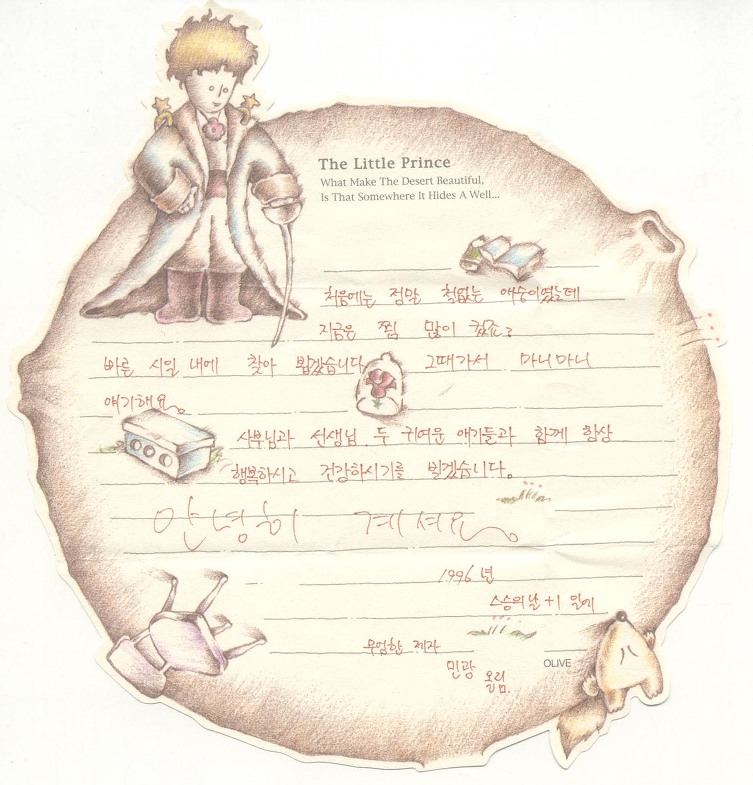 The Little Prince
What Make The Desert Beautiful,
Is That Somewhere It Hides A Well...
처음에는 정말 철없는 애송이였는데
지금은 찜 많이 컸죠?
빠른 시일 내에 찾아 뵙겠습니다 그때가서 마니마니
얘기해요.
사부님과 선생님 두 귀여운 얘기들과 함께 항상
행복하시고 건강하시기를 빌겠습니다.
안녕히 계셔요.
1996 년
스승의날 +1 일에
제자
민광
올림.
OLIVE